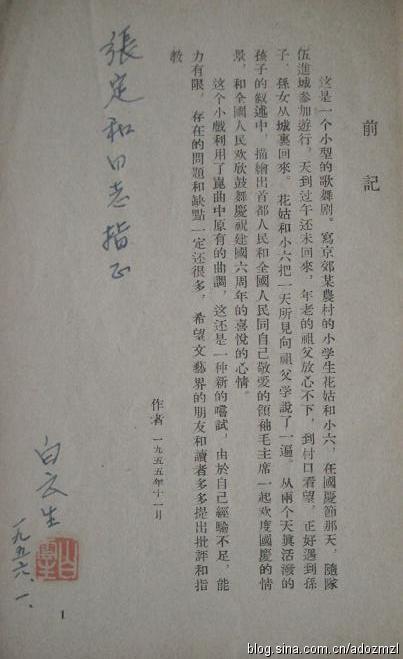 前記
这是一个小型的歌舞剧。寫京郊某農村的小学生花姑和小六，在國慶節那天，隨隊
伍進城参加遊行，天到过午还未回來，年老的祖父放心不下，到村口看望，正好遇到孫
子、孫女从城裏回來。花姑和小六把一天所見向祖父学說了一遍。从兩个天眞活潑的
孩子的叙述中，描繪出首都人民和全國人民同自己敬愛的領袖毛主席一起欢度國慶的情
景，和全國人民欢欣鼓舞慶祝建國六周年的喜悅的心情。
这个小戲利用了崑曲中原有的曲調，这还是一种新的嚐試，由於自己經驗不足，能
力有限，存在的問題和缺點一定还很多，希望文藝界的朋友和讀者多多提出批評和指
教
作者 一九五五年十一月
張定和同志指正
白云生
一九五六、一、
1
blog.sina.com.cn/adozmzl